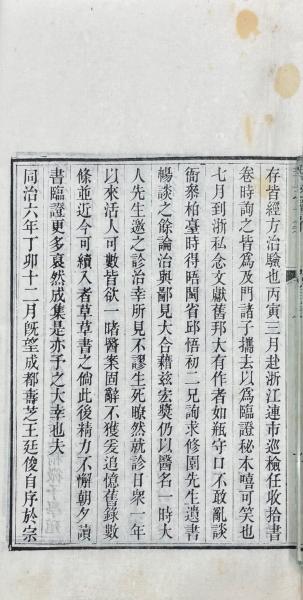 存皆經方治驗也丙寅三月赴浙江連市巡檢任收拾書
卷時詢之皆為及門諸子攜去以為臨證秘本嘻可笑也
七月到浙私念文獻舊邦大有作者如瓶守口不敢亂談
衙叅柏臺時得晤閩省邱悟初二兄詢求修園先生遺書
暢談之餘論治與鄙見大合藉茲宏奬仍以醫名一時大
人先生邀之診治幸所見不謬生死瞭然就診日衆一年
以來活人可數皆欲一睹醫案固辭不獲爰追憶舊錄數
條並近今可續入者草草書之倘此後精力不懈朝夕讀
書臨證更多裒然成集是亦予之大幸也夫
同治六年丁卯十二月旣望成都壽芝王廷俊自序於宗